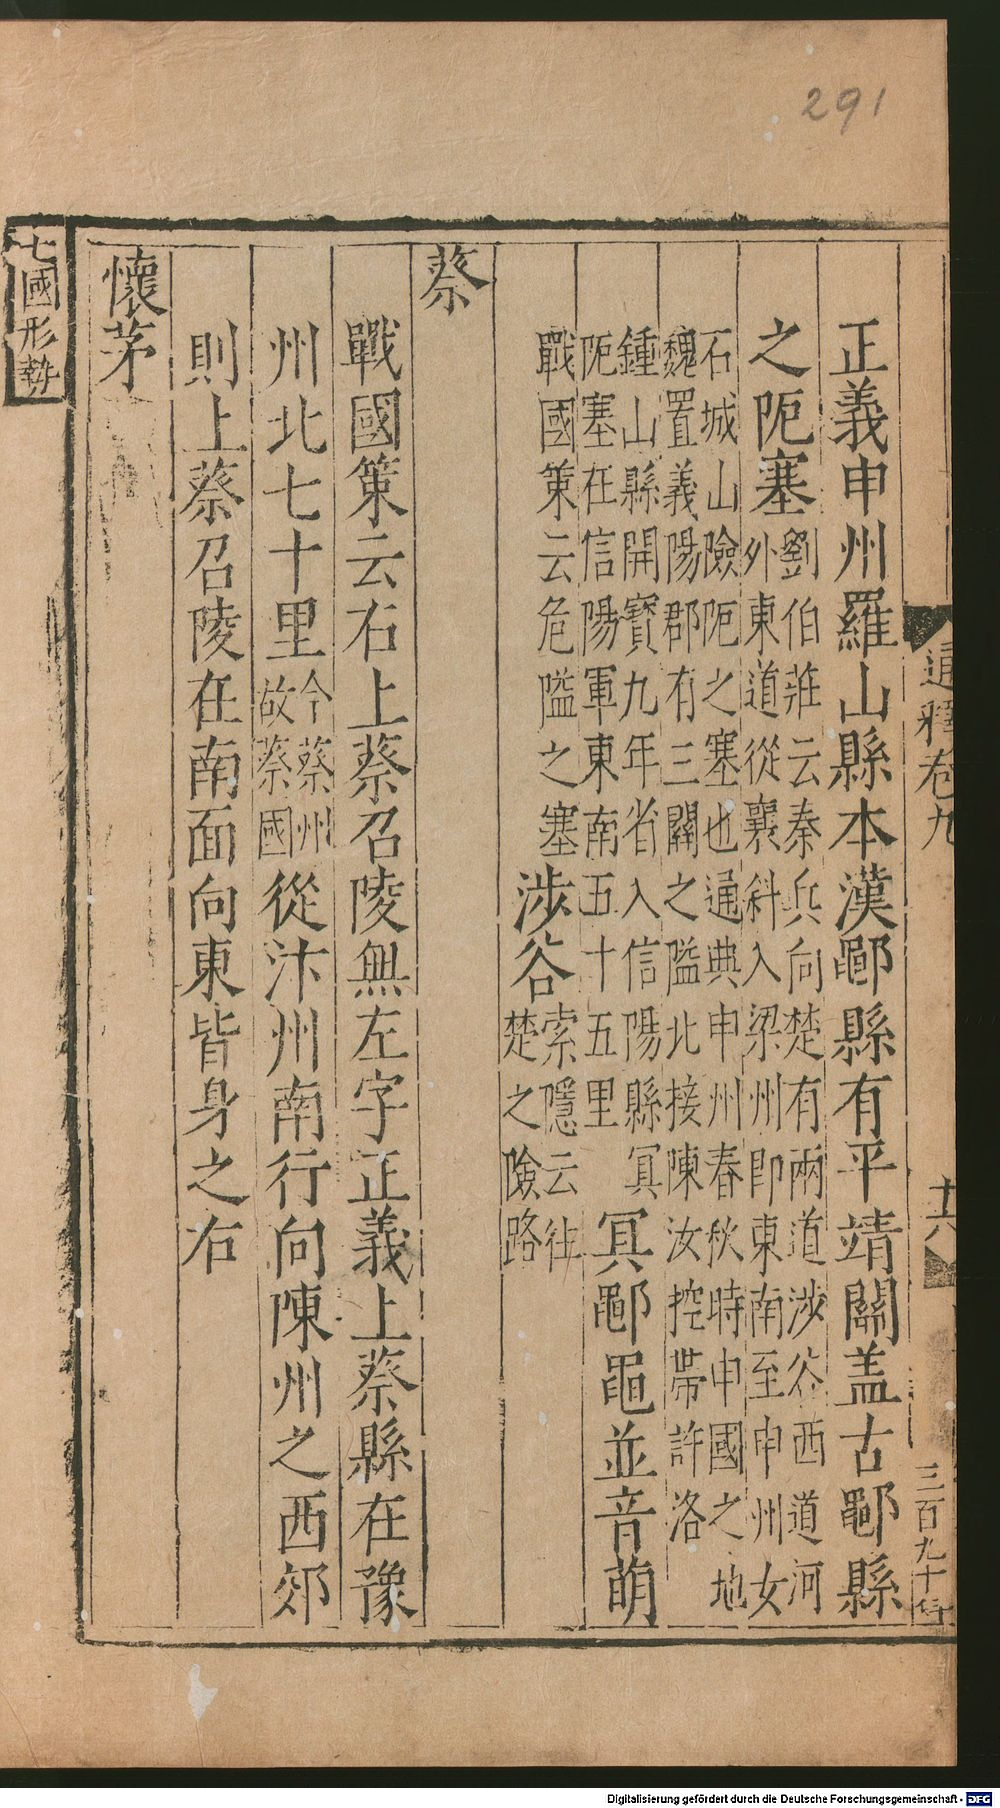 291
通釋卷九 十六 三百九十
正義申州羅山縣本漢鄳縣有平靖關盖古鄳縣
之阨塞劉伯莊云秦兵向楚有兩道涉谷西道河
外東道從襄斜入梁州即東南至申州女
石城山險阨之塞也通典申州春秋時申國之地
魏置義陽郡有三關之隘北接陳汝控帶許洛
鍾山縣開寶九年省入信陽縣冥
阨塞在信陽軍東南五十五里冥鄳黽並音萌
戰國策云危隘之塞涉谷索隱云往
楚之險路
蔡
戰國策云右上蔡召陵無左字正義上蔡縣在豫
州北七十里今蔡州
故蔡國從汴州南行向陳州之西郊
則上蔡召陵在南面向東皆身之右
懷茅
七國形埶
Digitalisierung gefördert durch die Deutsche Forschungsgemeinschaft - DFG